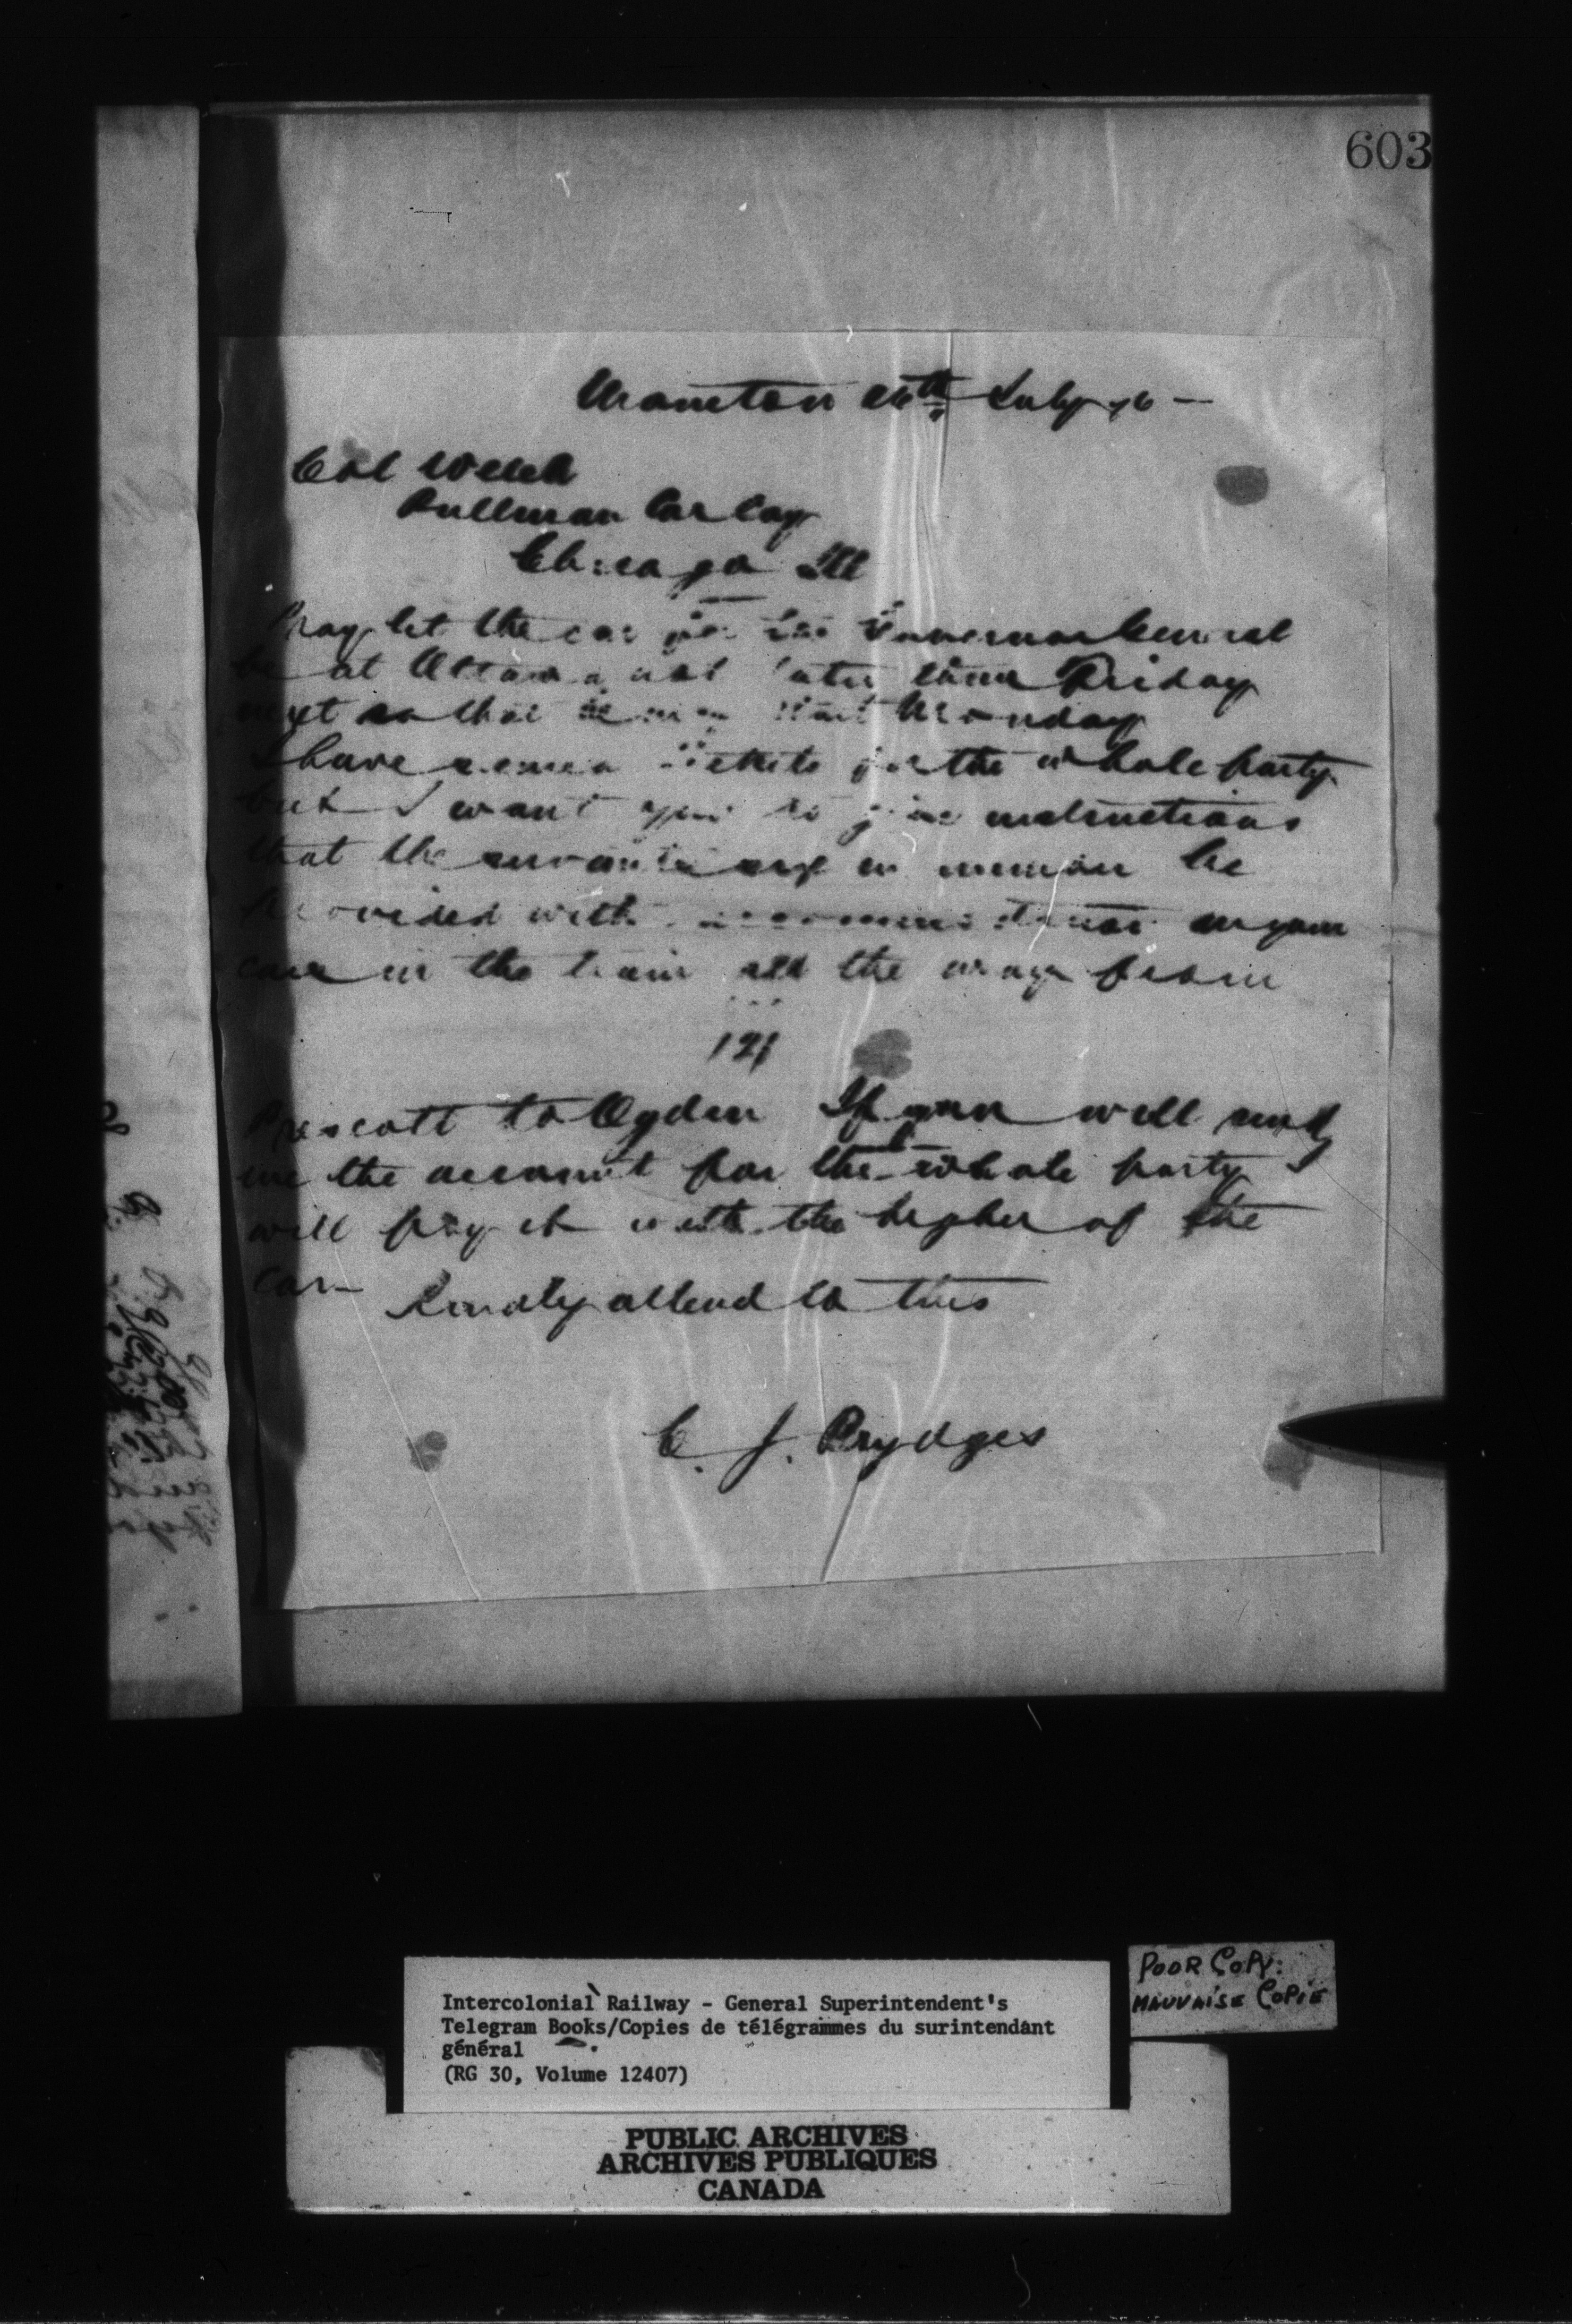 603
Moncton 26th July 76 —
Col Welch
Pullman Car Coy
Chicago Ill
Pray let the car for the Governor General
be at Ottawa not later than Friday
next so that it may start Monday
I have tickets for the whole party
but I want you to give instructions
that the servants in number be
provided with accommodation in your
cars in the train all the way from
121
Prescott to Ogden If you will send
me the account for the whole party
will pay it with the of the
car
Kindly attend to this
C. J. Brydges
Intercolonial Railway - General Superintendent's
Telegram Books/Copies de télégrammes du surintendant
général
(RG 30, Volume 12407)
POOR COPY:
MAUVAISE COPIE
PUBLIC ARCHIVES
ARCHIVES PUBLIQUES
CANADA